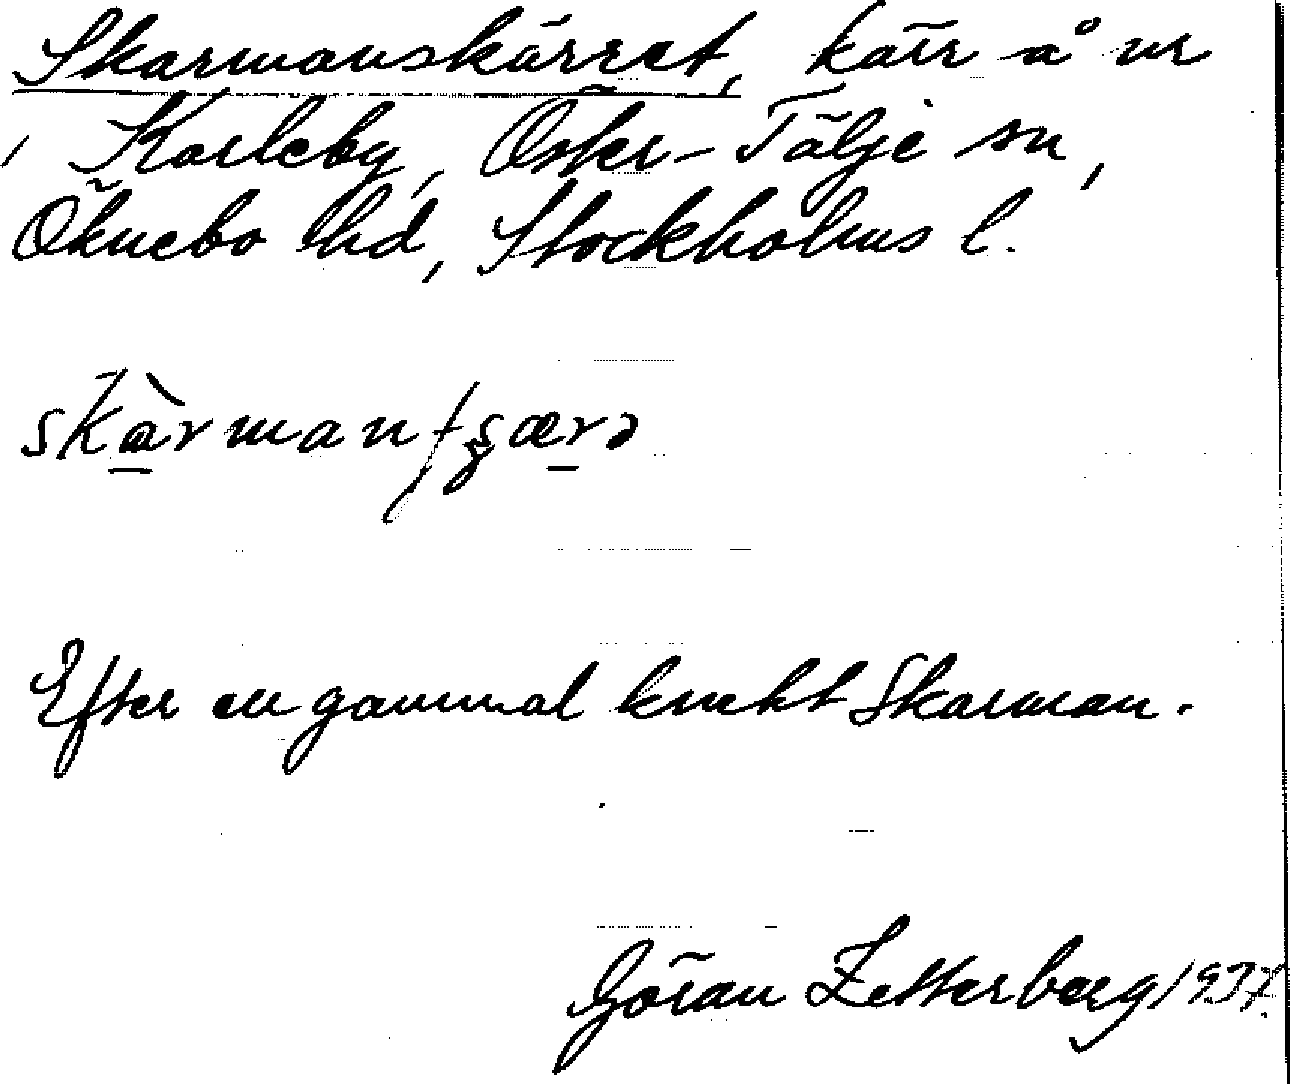 Skarmanskärret, kärr å nr
1 Karleby, Öster-Tälje sn,
Öknebo hd, Stockholms l.
Efter en gammal knekt Skarman.
Göran Zetterberg 1937.